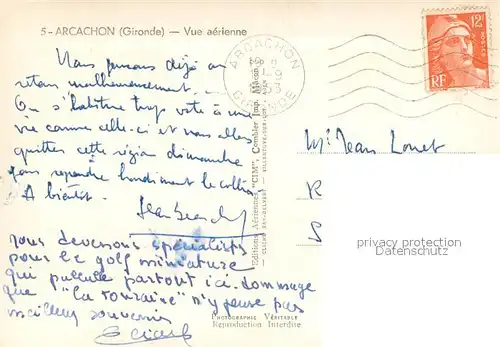 5 - ARCACHON (Gironde) - Vue aérienne
Nous pensons déjà au
retour malheureusement.
On s'habitue trop vite à une
vie comme celle-ci et nous allons
quitter cette région dimanche
pour reprendre lundi le collier
A bientôt.
nous devenons spécialistes
pour le golf miniature
qui pullule partout ici. dommage
que "la Touraine" n'y pense pas
meilleur souvenir
ARCACHON
1953
GIRONDE
Editions Aériennes "CIM", Combier Imp. Macon
PHOTOGRAPHIE VÉRITABLE
Reproduction Interdite
12F
RF
POSTES
Mr Jean Louet
privacy protection
AK-Ansichtskarten.de